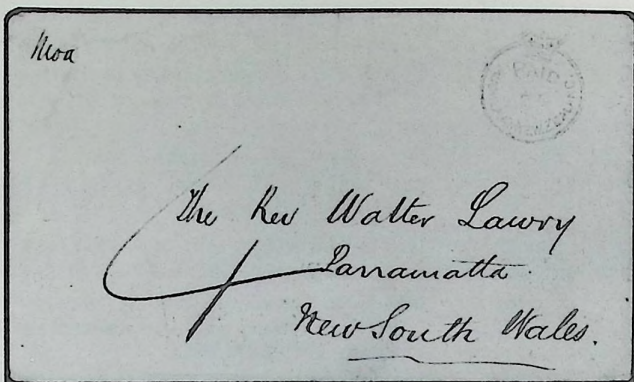 Moa
PAID
The Rev Walter Lawry
Parramatta.
New South Wales.